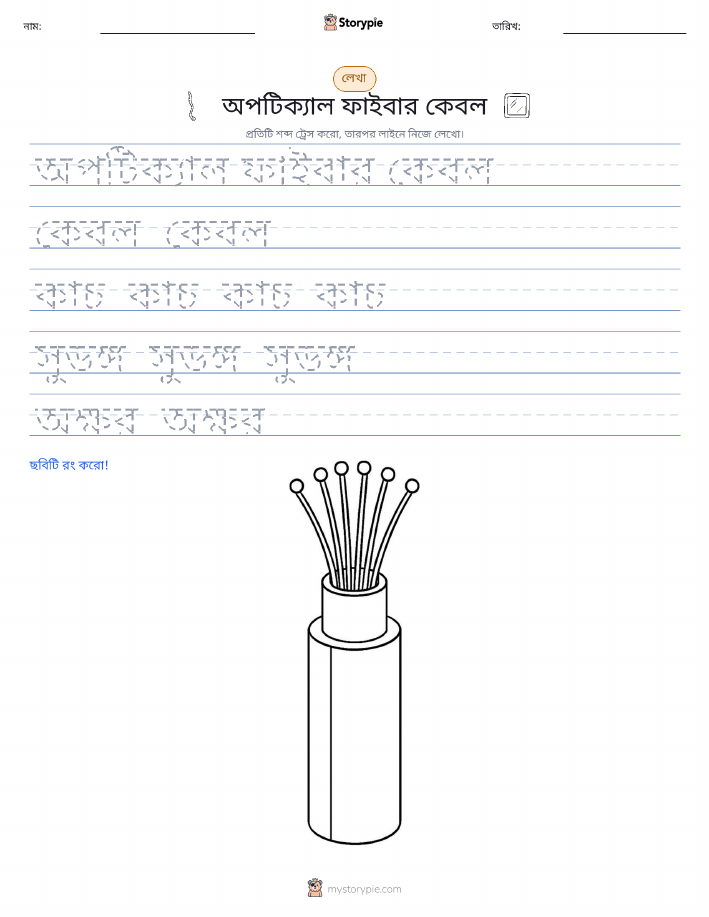 নাম:
Storypie
তারিখ:
লেখা
অপটিক্যাল ফাইবার কেবল
প্রতিটি শব্দ ট্রেস করো, তারপর লাইনে নিজে লেখো।
অপটিক্যাল ফাইবার কেবল
কেবল কেবল
কাচ কাচ কাচ কাচ
সুড়ঙ্গ সুড়ঙ্গ সুড়ঙ্গ
অক্ষর অক্ষর
ছবিটি রং করো!
mystorypie.com